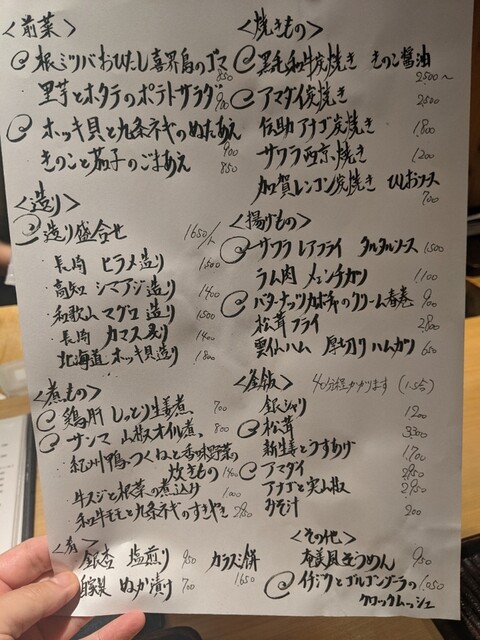 <前菜>
根ミツバおひたし喜界島のゴマ 850
里芋とホタテのポテトサラダ 900
ホッキ貝と九条ネギのぬたあえ 900
きのこと茄子のごまあえ 850
<造り>
造り盛合せ 1650/人
・長崎 ヒラメ造り 1500
・高知 シマアジ造り 1400
・和歌山 マグロ造り 1500
・長崎 カマス炙り 1400
・北海道 ホッキ貝造り 1800
<煮もの>
鶏肝 しっとり生姜煮 700
サンマ 山椒オイル煮 800
・紀州鴨つくねと香味野菜の
炊きもの 1400
・牛スジと根菜の煮込み 1000
・和牛モモと九条ネギのすきやき 2800
<肴>
銀杏 塩煎り 950
カラスミ餅 1650
自家製 ぬか漬け 700
<焼きもの>
黒毛和牛炭焼き きのこ醤油
2500〜
アマダイ炭焼き 2500
伝助アナゴ炭焼き 1800
サワラ西京焼き 1200
加賀レンコン炭焼き ひしおソース
700
<揚げもの>
サワラ レアフライ タルタルソース 1500
ラム肉 メンチカツ 1100
バターナッツカボチャのクリーム春巻 900
松茸フライ 2800
雲仙ハム 厚切りハムカツ 650
<釜飯> 40分程かかります (1.5合)
銀シャリ 1200
松茸 3300
新生姜とうすあげ 1700
アマダイ 2950
アナゴと実山椒 2950
みそ汁 200
<その他>
奄美風そうめん 950
イチジクとゴルゴンゾーラの 1050
クロックムッシュ